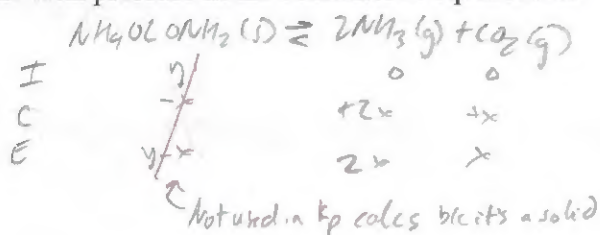 NH4OCONH2(s) ⇌ 2NH3(g) + CO2(g)
I y 0 0
C -x +2x +x
E y-x 2x x
Not used in Kp calcs b/c it's a solid